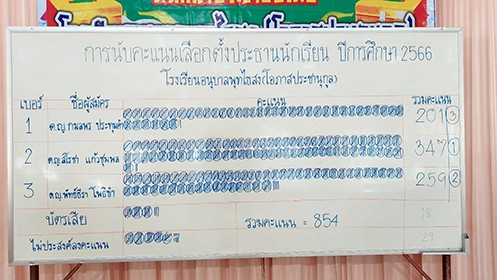 การนับคะแนนเลือกตั้งประธานนักเรียน ปีการศึกษา 2566
โรงเรียนอนุบาลพุทไธสง(โอภาสประชานุกูล)
เบอร์ ชื่อผู้สมัคร คะแนน รวมคะแนน
1 ด.ญ.กมลพร ประทุมคำ 201 3
2 ด.ญ.สิริชา แก้วชุมพล 347 1
3 ด.ญ.พัทธ์ธีรา โพธิขำ 259 2
บัตรเสีย รวมคะแนน = 854 18
ไม่ประสงค์ลงคะแนน 29